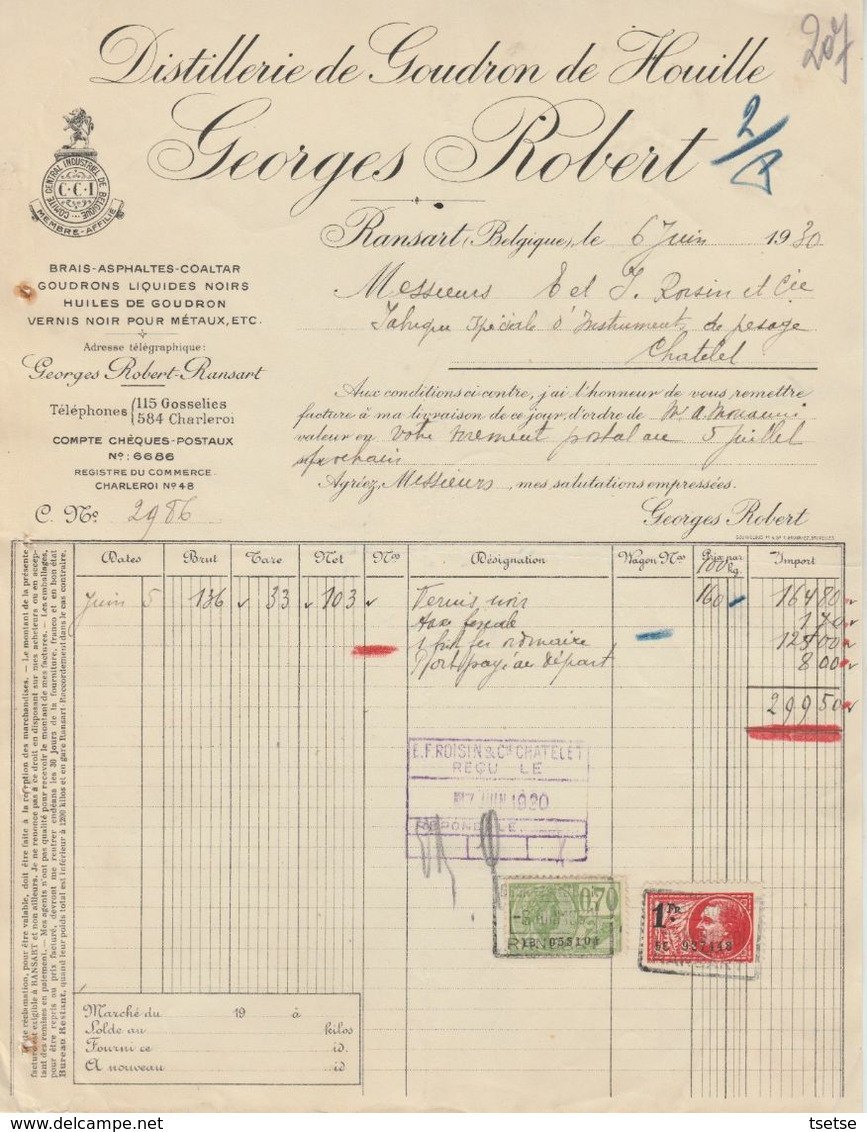 207
Distillerie de Goudron de Houille
Georges Robert
2/8
COMITÉ CENTRAL INDUSTRIEL DE BELGIQUE
C·C·I
MEMBRE-AFFILIÉ
Ransart (Belgique), le 6 Juin 1930
BRAIS-ASPHALTES-COALTAR
GOUDRONS LIQUIDES NOIRS
HUILES DE GOUDRON
VERNIS NOIR POUR MÉTAUX, ETC.
Adresse télégraphique:
Georges Robert-Ransart
Téléphones {115 Gosselies
584 Charleroi
COMPTE CHÈQUES-POSTAUX
No: 6686
REGISTRE DU COMMERCE
CHARLEROI No 48
C. No 2986
Messieurs E et F. Roisin et Cie
Fabrique Spéciale d'Instruments de pesage
Chatelet
Aux conditions ci-contre, j'ai l'honneur de vous remettre
facture à ma livraison de ce jour, d'ordre de Mr A.
valeur en votre virement postal au 5 juillet
prochain
Agréez, Messieurs, mes salutations empressées.
Georges Robert
Dates Brut Tare Net Nos Désignation Wagon Nos Prix par 100 kg. Import
Juin 5 136 33 103 Vernis noir 160 164 80
Taxe fiscale 1 70
1 fût fer ordinaire 125 00
Port payé au départ 8 00
299 50
E.F.ROISIN & Cie CHATELET
REÇU LE
7 JUIN 1930
RÉPONDU LE
0,70
RANSART
1B 055104
1 FR
6C 937148
RANSART
Marché du 19 à
Solde au kilos
Fourni ce id.
A nouveau id
Toute réclamation, pour être valable, doit être faite à la réception des marchandises. — Le montant de la présente
facture est exigible à RANSART et non ailleurs. Je ne renonce pas à ce droit en disposant sur mes acheteurs ou en accep-
tant des remises en paiement. — Mes agents n'ont pas qualité pour recevoir le montant de mes factures. — Les emballages,
pour être repris au prix facturé, devront me rentrer endéans les 30 jours de la fourniture, franco et en bon état
Bureau Restant, quand leur poids total est inférieur à 1200 kilos et en gare Ransart-Raccordement dans le cas contraire.
Delcampe.net
tsetse